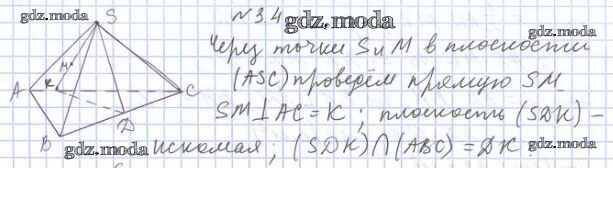 gdz.moda
№ 3.4
gdz.moda
gdz.moda
Через точки S и M в плоскости
(ASC) проведём прямую SM
SM⊥AC = K; плоскость (SDK) –
искомая; (SDK)∩(ABC) = DK
gdz.moda
gdz.moda
S
M
A
K
C
D
B